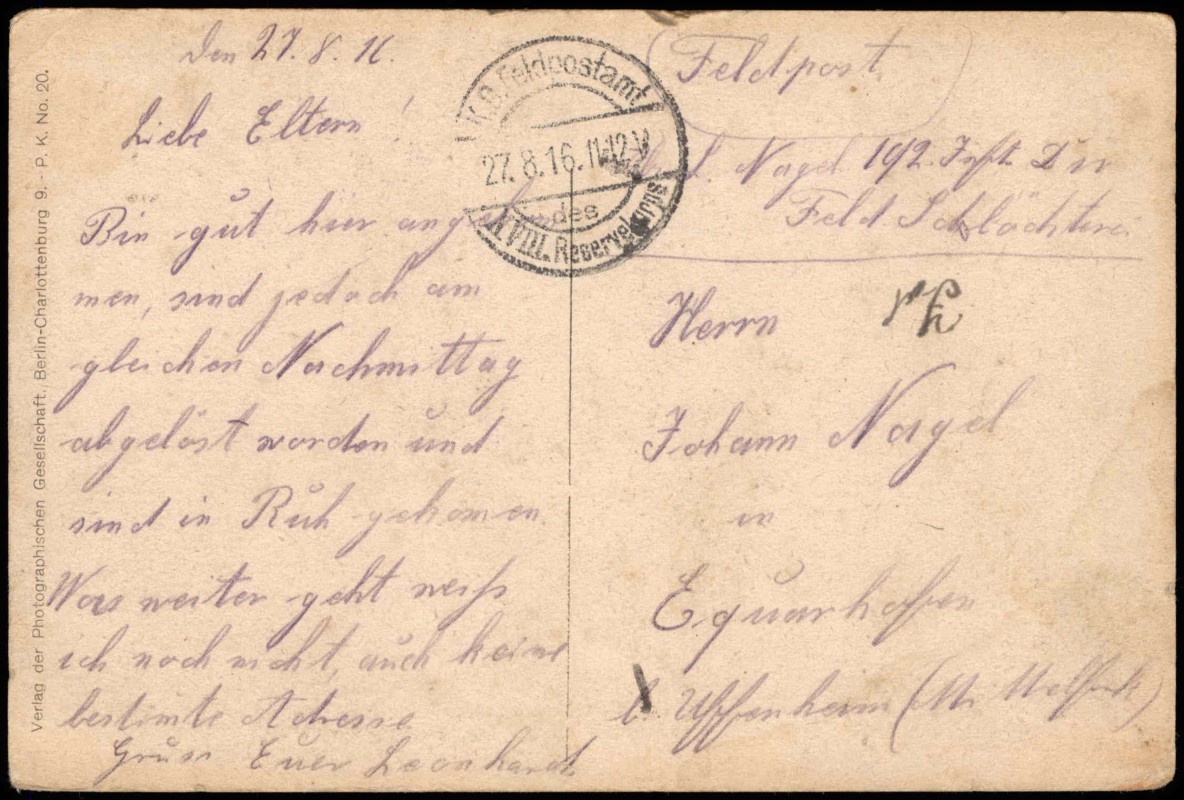 Den 27. 8. 16.
Liebe Eltern!
Bin gut hier angekom
men, sind jedoch am
gleichen Nachmittag
abgelöst worden und
sind in Ruh gekomen.
Was weiter geht weiß
ich noch nicht, auch keine
bestimte Adresse
Gruss Euer Leonhardt
Feldpost
L. Nagel 192. Inft. Div
Feld Schlächterei
Herrn
Johann Nagel
in
Equarhofen
b. Uffenheim
K. S. Feldpostamt
27. 8. 16. 11-12 V
des
XVIII. Reservekorps
Verlag der Photographischen Gesellschaft, Berlin-Charlottenburg 9. - P. K. No. 20.